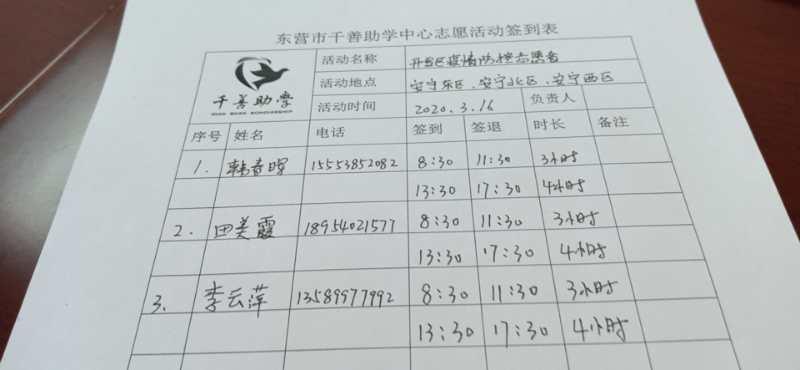 东营市千善助学中心志愿活动签到表
千善助学
活动名称 开发区疫情防控志愿者
活动地点 安宁东区、安宁北区、安宁西区
活动时间 2020.3.16 负责人
序号 姓名 电话 签到 签退 时长 备注
1. 韩春晖 15553852082 8:30 11:30 3小时
13:30 17:30 4小时
2. 田美霞 18954021577 8:30 11:30 3小时
13:30 17:30 4小时
3. 李云萍 13589977992 8:30 11:30 3小时
13:30 17:30 4小时